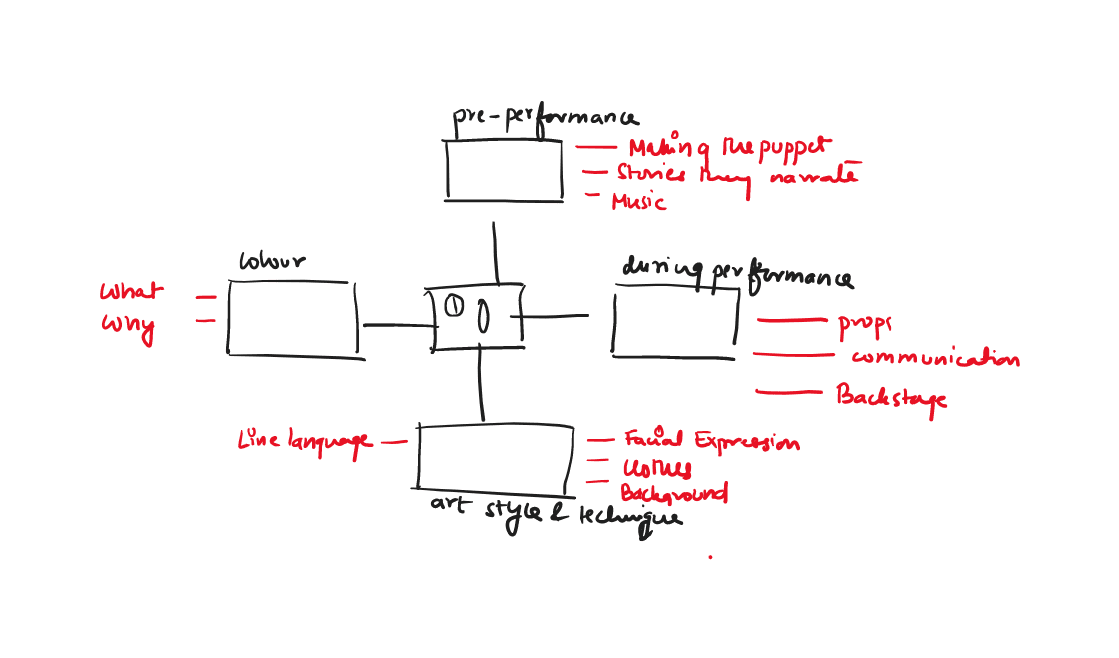 pre-performance
Making the puppet
Stories they narrate
Music
colour
What
Why
during performance
props
communication
Backstage
Line language
Facial Expression
clothes
Background
art style & technique